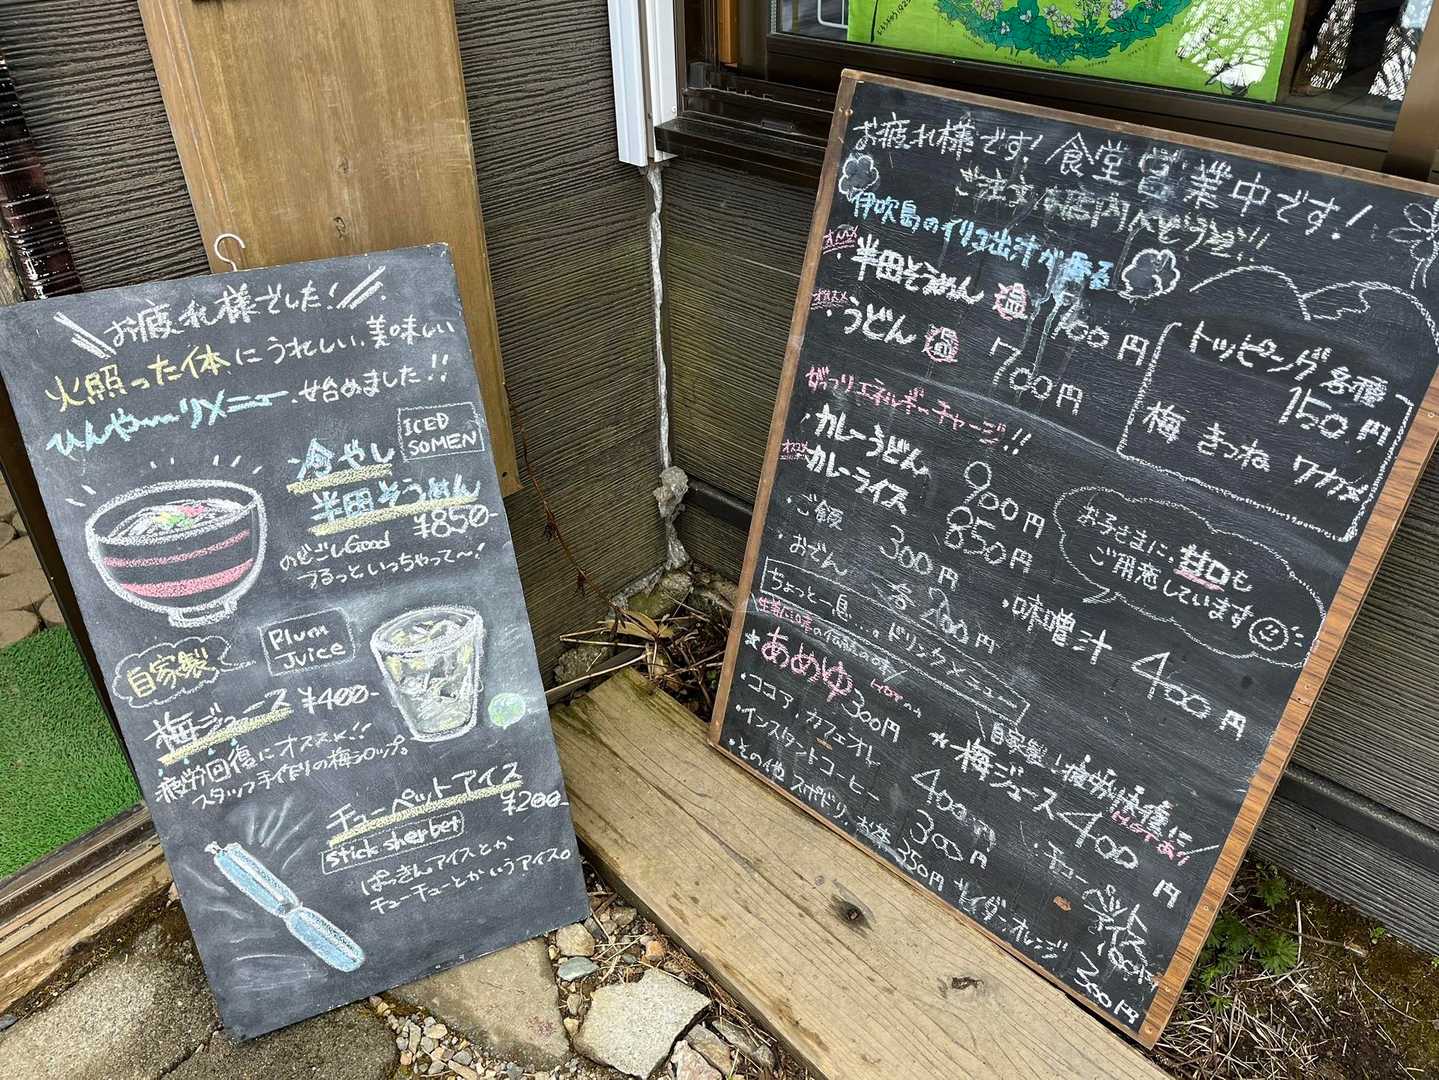 お疲れ様でした!
火照った体にうれしい、美味しい
ひんや〜りメニュー始めました!!
ICED SOMEN
冷やし
半田そうめん
¥850-
のどごしGood
つるっといっちゃって〜!
自家製
Plum Juice
梅ジュース ¥400-
疲労回復にオススメ!!
スタッフ手作りの梅シロップ。
チューペットアイス
¥200-
stick sherbet
ぱっきんアイスとか
チューチューとかいうアイス。
お疲れ様です!食堂営業中です!
ご注文は店内へどうぞ!!
伊吹島のイリコ出汁が香る
オススメ
・半田そうめん 温 700円
オススメ
・うどん 温 700円
トッピング各種
150円
梅 きつね ワカメ
がっつりエネルギーチャージ!!
・カレーうどん 900円
オススメ
カレーライス 850円
・ご飯 300円
・おでん 各200円
お子さまに、甘口も
ご用意しています
・味噌汁 400円
ちょっと一息...。ドリンクメニュー
*あめゆ 300円
HOTのみ
・ココア・カフェオレ 400円
・インスタントコーヒー 300円
・その他 スポドリ、お茶 350円
自家製!疲労回復に
*梅ジュース 400円
HOTあり
・チューペットアイス
サイダー、オレンジ 300円